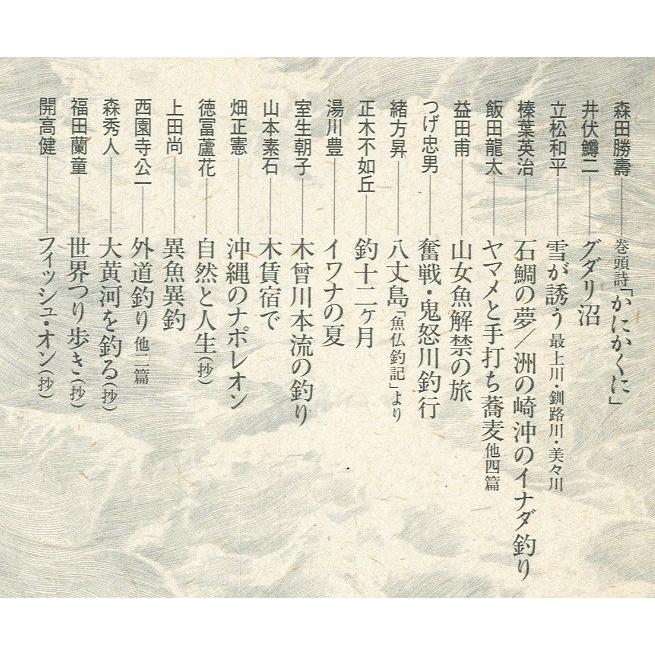 森田勝壽──巻頭詩「かにかくに」
井伏鱒二──グダリ沼
立松和平──雪が誘う 最上川・釧路川・美々川
榛葉英治──石鯛の夢／洲の崎沖のイナダ釣り
飯田龍太──ヤマメと手打ち蕎麦 他四篇
益田甫──山女魚解禁の旅
つげ忠男──奮戦・鬼怒川釣行
緒方昇──八丈島「魚仏釣記」より
正木不如丘──釣十二ヶ月
湯川豊──イワナの夏
室生朝子──木曾川本流の釣り
山本素石──木賃宿で
畑正憲──沖縄のナポレオン
徳冨蘆花──自然と人生(抄)
上田尚──異魚異釣
西園寺公一──外道釣り 他二篇
森秀人──大黄河を釣る(抄)
福田蘭童──世界つり歩き(抄)
開高健──フィッシュ・オン(抄)